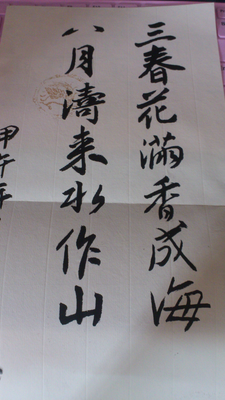 三春花滿香成海
八月濤来水作山
甲午年